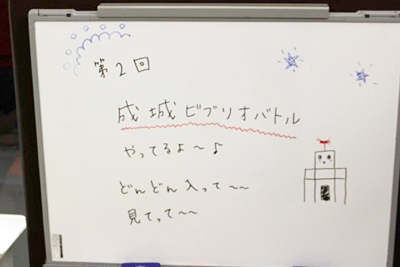 第2回
成城ビブリオバトル
やってるよ～♪
どんどん入って～～
見てって～～